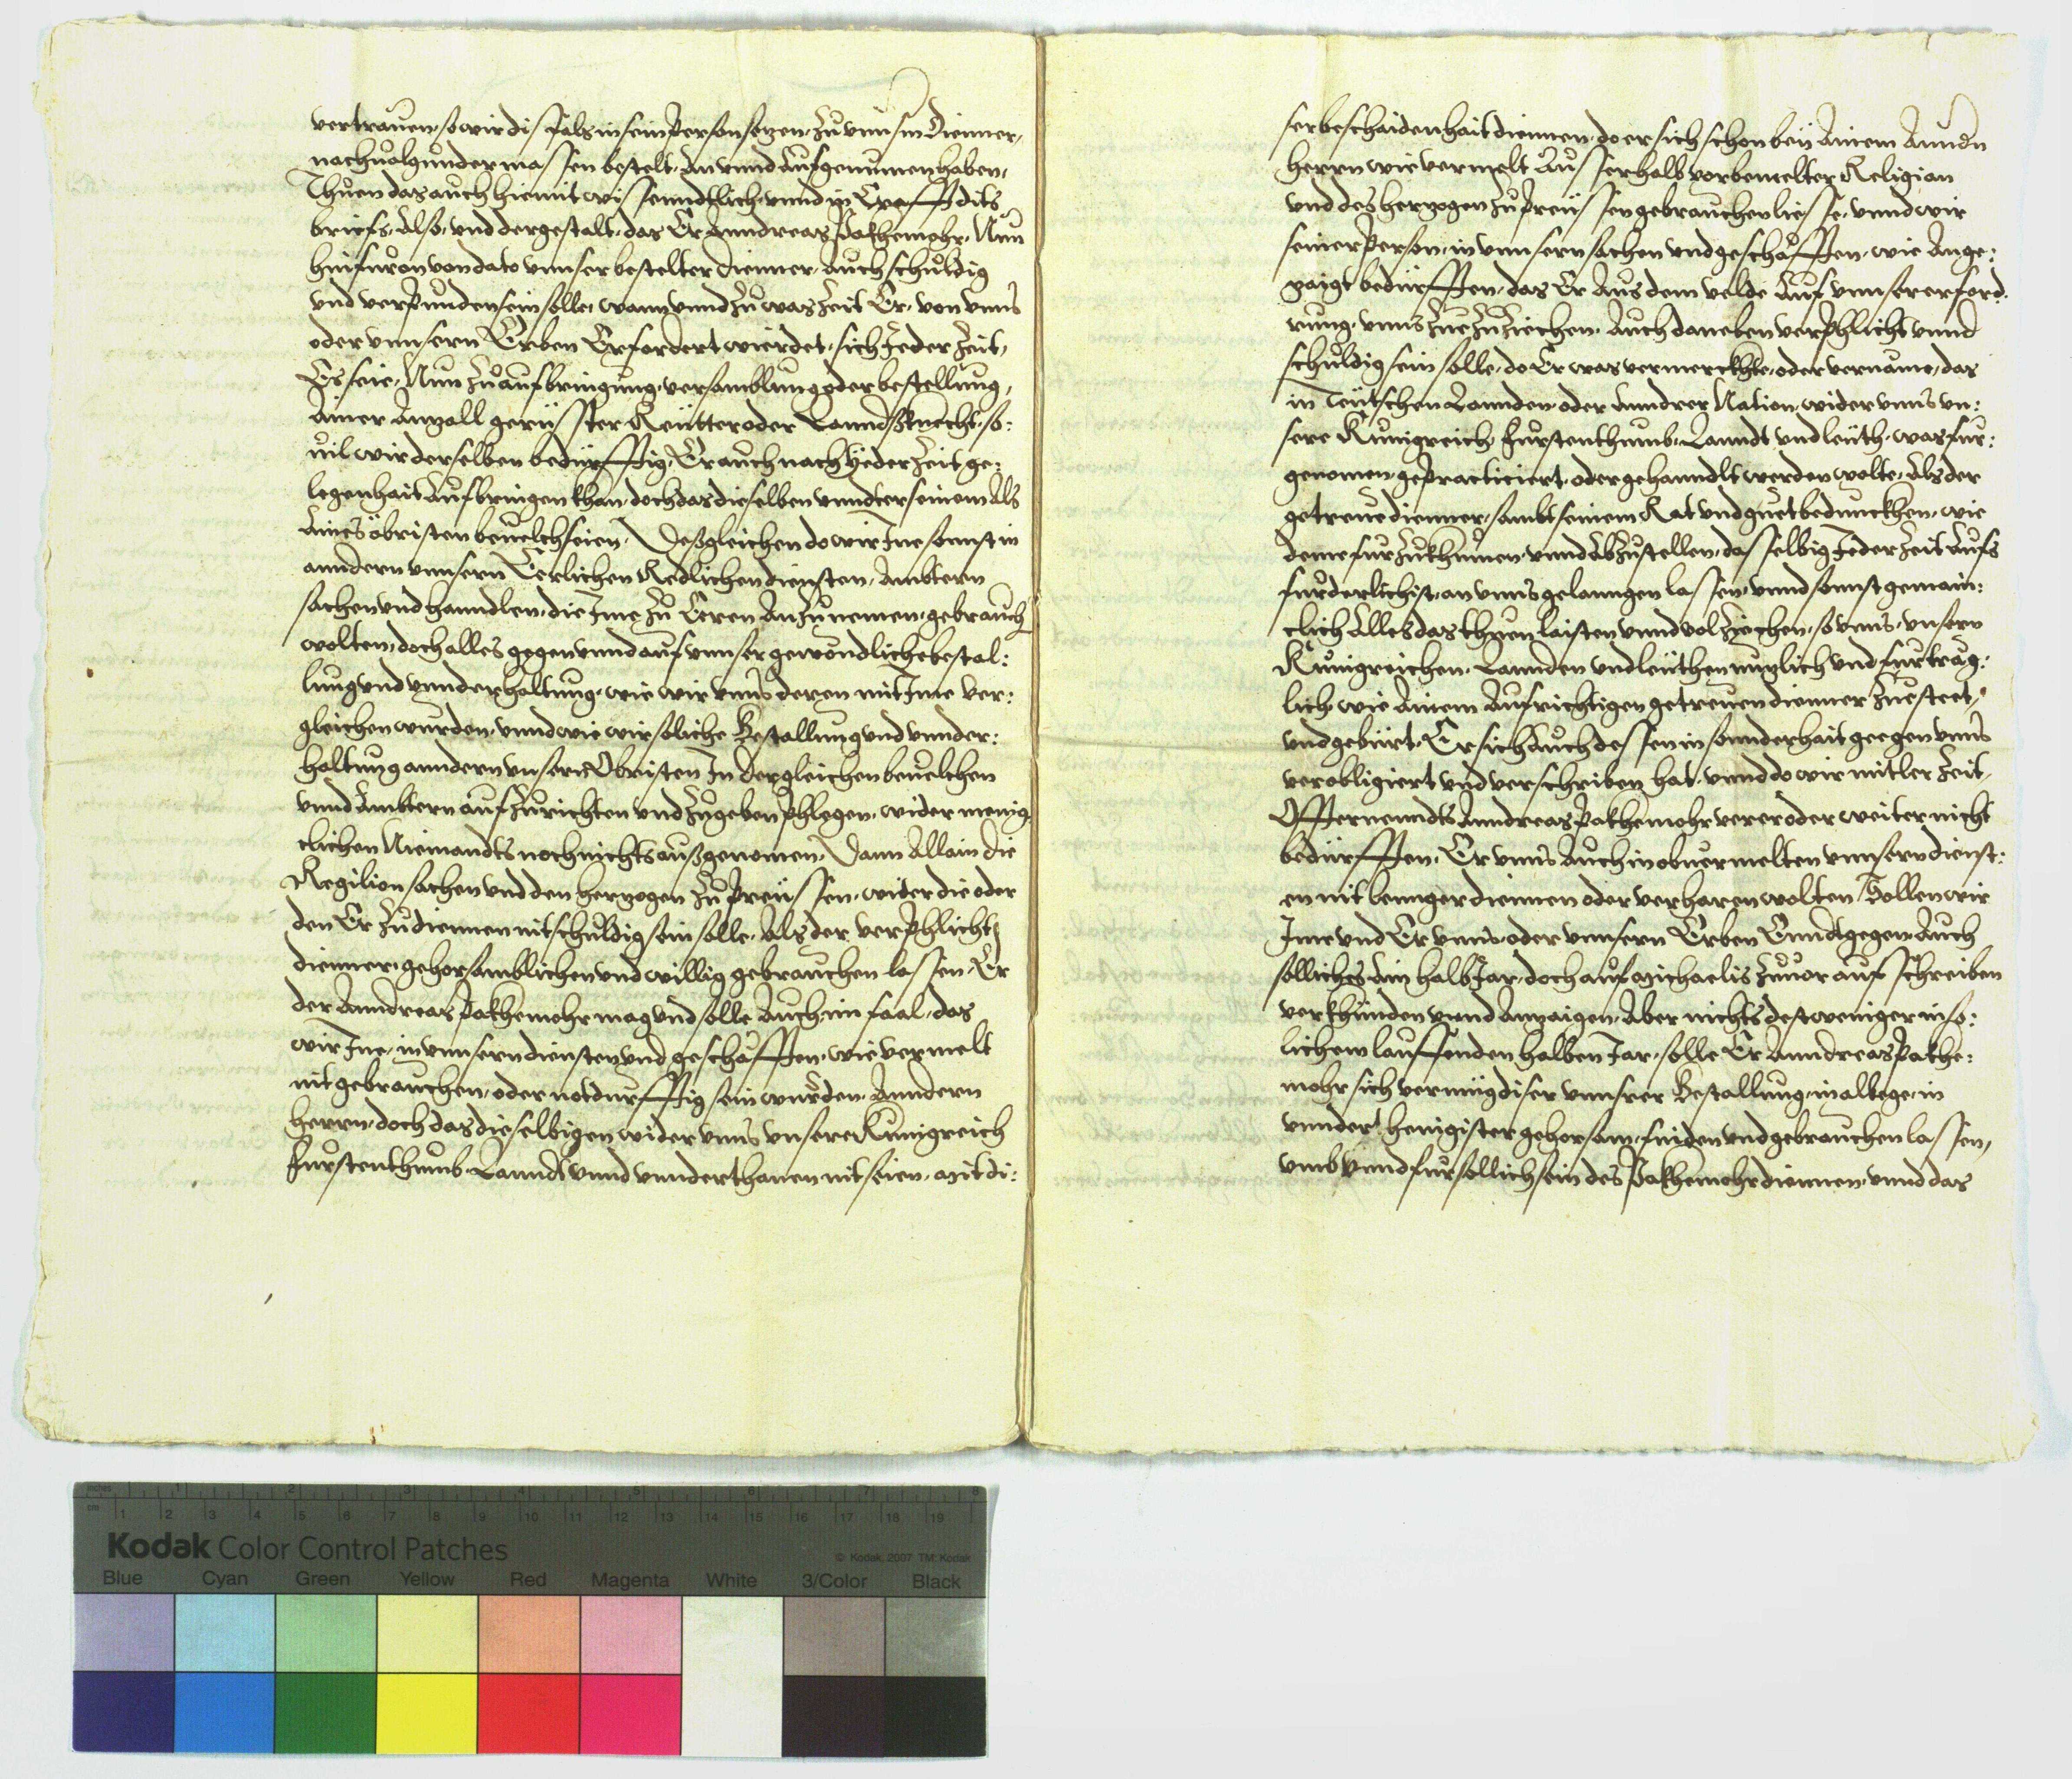 vertrauen, so wir dißfals in sein Person setzen, zu unnserm Diener,
nachuolgunder massen bestelt, An unnd Aufgenumen haben,
Thuen das auch hiemit wissenndtlich, unnd in Crafft dits
briefs, Also, und dergestalt, das Er Anndreas Pakhemohr, Nun
hinfuron von dato unnser bestelter Dienner, Auch schuldig
und verpunden sein solle, wann unnd zu was Zeit Er, von unns
oder unnsern Erben Erfordert wierdet, sich Jeder Zeit,
Es seie, Nun zu aufbringung, versamblung oder bestellung,
Ainer Anzall gerüsster Reütter oder Lanndßknecht, so:
uil wir derselben bedürfftig, Er auch nach yeder Zeit ge:
legenhait Aufbringen khan, doch das dieselben unndter seinem Als
Aines öbristen beuelch seien, Deßgleichen do wir Jne sonnst in
anndern unnsern Eerlichen Redlichen diensten, Ambtern
sachen und hanndlen, die Jme zu Eeren Anzunemen, gebrauch
wolten, doch alles gegen unnd auf unnser gewondliche bestal:
lung und unnderhaltung, wie wir unns deren mit Jme ver:
gleichen wurden, unnd wie wir soliche Bestallung und unnder:
haltung anndern unsern Obristen Jn dergleichen beuelchen
unnd Ambtern aufzurichten und zugeben phlegen, wider menig
clichen Niemandts noch nichts außgenomen, Dann Allain die
Regilion sachen und den hertzogen zu Preüssen, wider die oder
den Er zu diennen nit schuldig sein solle, Als der verphlicht
dienner, gehorsamblichen und willig gebrauchen lassen, Er
der Anndreas Pakhemohr mag und solle Auch im faal, das
wir Jne, in unnsern diensten und geschäfften, wie vermelt
nit gebrauchen, oder notdurfftig sein wurden, Anndern
herrn, doch das dieselbigen wider unns unsere Kunigreich
furstenthumb, Lanndt unnd unnderthanen nit seien, mit di:
ser beschaidenhait diennen, do er sich schon bey Ainem Anndn
herrn wie vermelt Ausserhalb vorbemelter Religion
und des hertzogen zu Preüssen gebrauchen liesse, unnd wir
seiner Person, in unnsern sachen und geschäfften, wie Ange:
zaigt bedürfften, das Er Aus dem velde Auf unnser erford
rung, unns zue zu ziechen, Auch daneben verphlicht unnd
schuldig sein solle, do Er was vermerckhte, oder vername, das
in Teütschen Lannden oder Anndrer Nation, wider unns un:
sere Kunigreich, furstenthumb, Lanndt und leüth, was fur:
genomen, gepracticiert, oder gehanndlt werden wolte, Als der
getreue dienner, sambt seinem Rat und guetbedunckhen, wie
deme fur zukhumen, unnd Abzustellen, dasselbig Jeder Zeit Aufs
furderlichist, an unns gelanngen lassen, unnd sonnst gemain:
clich Alles das thuen laisten unnd volziechen, so unns, unsern
Kunigreichen, Lannden und leüthen nutzlich und furträg:
lich, wie Ainem Aufrichtigen getreuen dienner zuesteet,
und gebürt, Er sich Auch dessen in sonnderhait geegen unns
verobligiert und verschriben hat, unnd do wir mitler Zeit,
Offternenndts Anndreas Pakhemohr verer oder weiter nicht
bedürfften, Er unns Auch in obuermelten unnsern dienst:
en nit lennger diennen oder verharen wolten, Sollen wir
Jme und Er unns, oder unnsern Erben Enndtgegen, Auch
solliches Ain halb Jar, doch auf Michaelis zuuor aufschreiben
verkhünden unnd Anzaigen, Aber nichts destweniger in so:
lichem lauffenden halben Jar, solle Er Anndreas Pakhe:
mohr sich vermüg diser unnsrer Bestallung, in alwege, in
unndert henigister gehorsam, finden und gebrauchen lassen,
umb unnd fur sollich sein des Pakhemohr diennen, unnd das